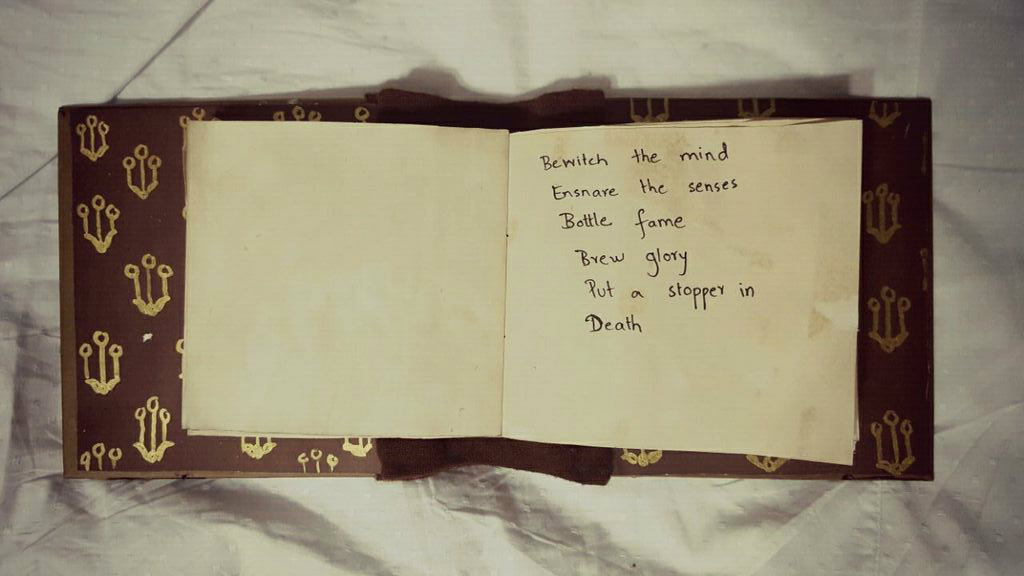 Bewitch the mind
Ensnare the senses
Bottle fame
Brew glory
Put a stopper in
Death